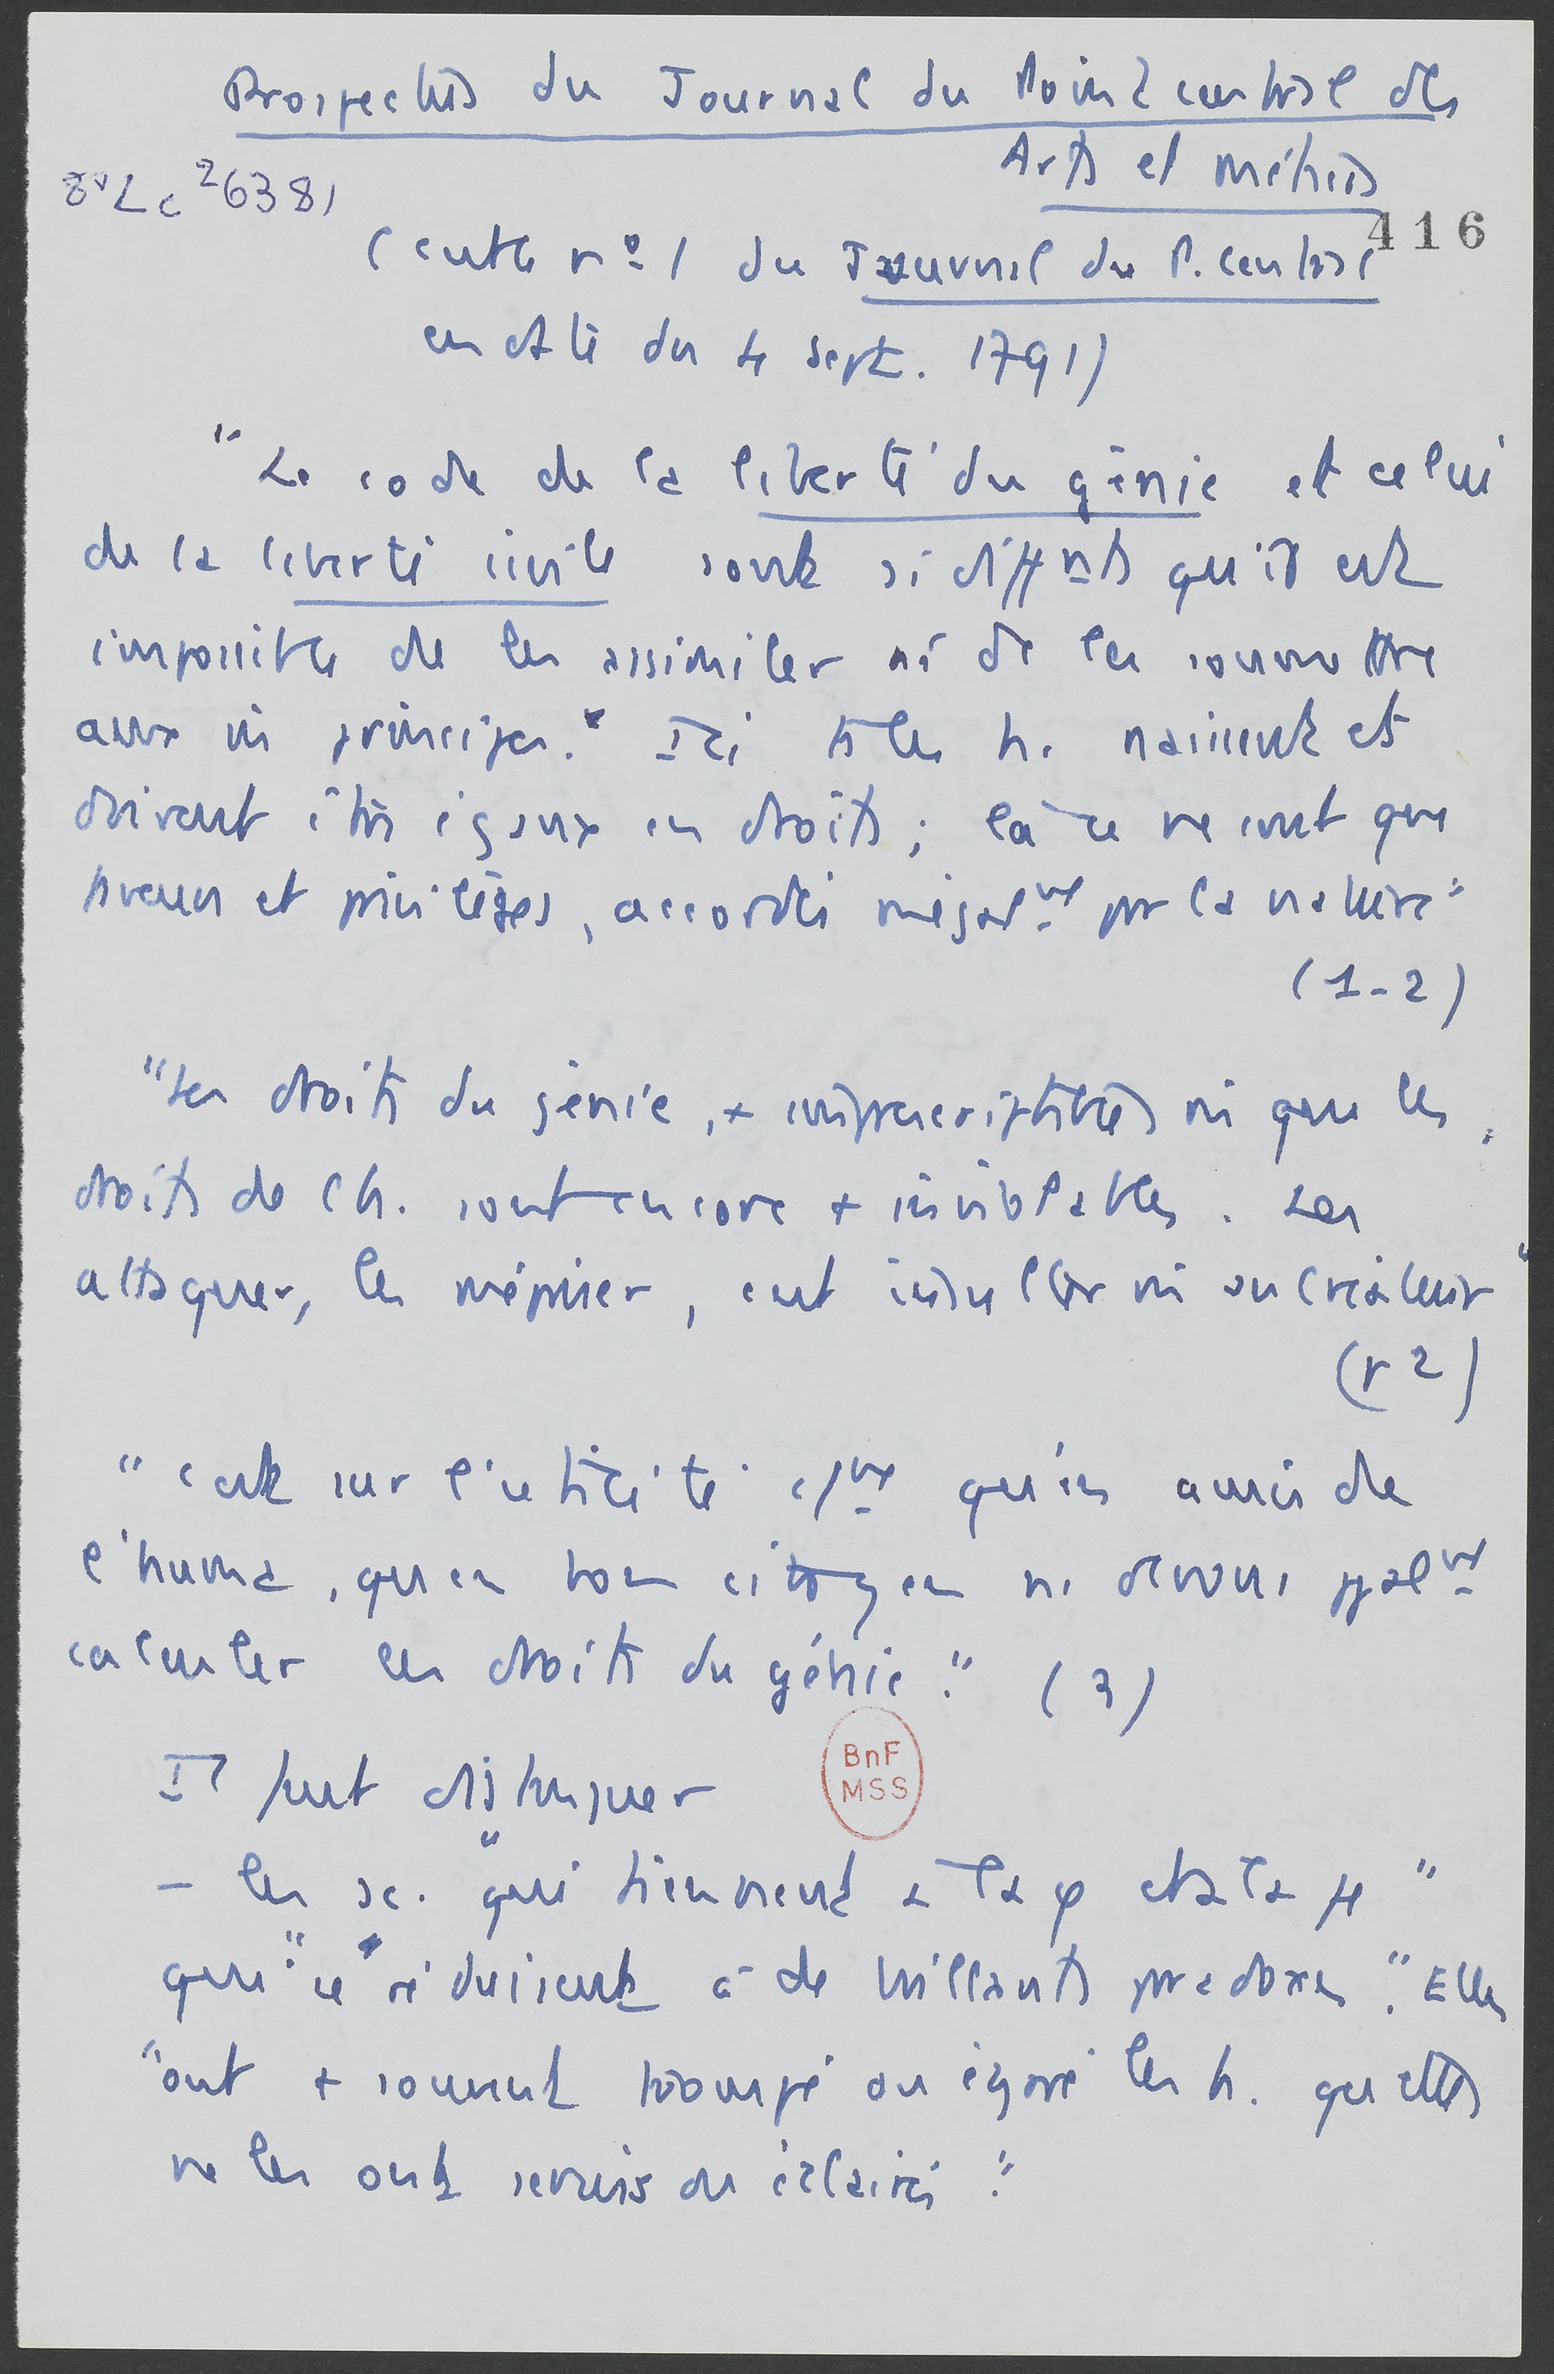 Prospectus du Journal du Point central des
Arts et métiers
8º Lc² 6381
416
(c'est le nº 1 du Journal du P. central
en date du 4 sept. 1791)
"Le code de la liberté du génie et celui
de la liberté civile sont si diffnts qu'il est
impossible de les assimiler ni de les soumettre
aux m̂ principes." Ici ts les h. naissent et
doivent être égaux en droits ; là ce ne sont que
faveurs et privilèges, accordés inégalmt par la nature"
(1-2)
"Les droits du génie, + imprescriptibles m̂ que les
droits de l'h. sont encore + inviolables. Les
attaquer, les mépriser, c'est insulter m̂ au créateur"
(p 2)
"c'est sur l'utilité qu'un ami de
l'huma, qu'un bon citoyen ns devons ppalmt
calculer les droits du génie." (3)
BnF
MSS
Il faut distinguer
- les sc. "qui tiennent à la φ et à la
que" se réduisent à de brillants paradoxes". Elles
"ont + souvent trompé ou égaré les h. qu'elles
ne les ont servis ou éclairés".